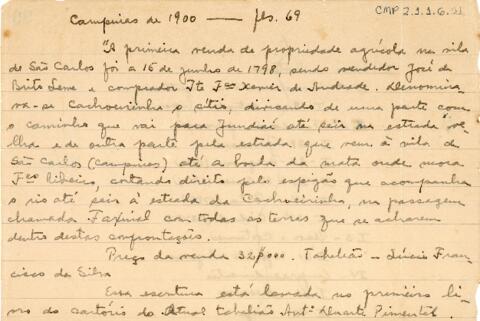 Campinas de 1900 — fls. 69
CMP 2.1.1.6.21
"A primeira venda de propriedade agrícola na vila
de São Carlos foi a 16 de Junho de 1798, sendo vendedor José de
Brito Leme e comprador Fco Xavier de Andrade. Denomina-
va-se Cachoeirinha o sítio, dividindo de uma parte com
o caminho que vai para Jundiaí até sair na estrada ve-
lha e de outra parte pela estrada que vem à vila de
São Carlos (Campinas) até a borda da mata onde mora
Fco Ribeiro, cortando direito pelo espigão que acompanha
o rio até sair à estrada da Cachoeirinha, na passagem
chamada Faxinal com todas as terras que se acharem
dentro destas confrontações.
Preço da venda 32$000. Tabelião - Lúcio Fran-
cisco da Silva
Essa escritura está lavrada no primeiro li-
vro do cartório do Atual tabelião Antº Duarte Pimentel.